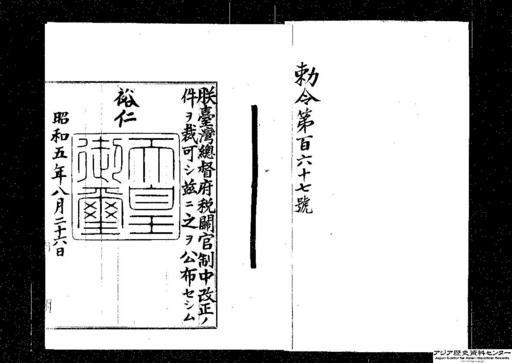 勅令第百六十七號
朕臺灣總督府税關官制中改正ノ
件ヲ裁可シ茲ニ之ヲ公布セシム
裕仁
天皇
御璽
昭和五年八月二十六日
アジア歴史資料センター
Japan Center for Asian Historical Records